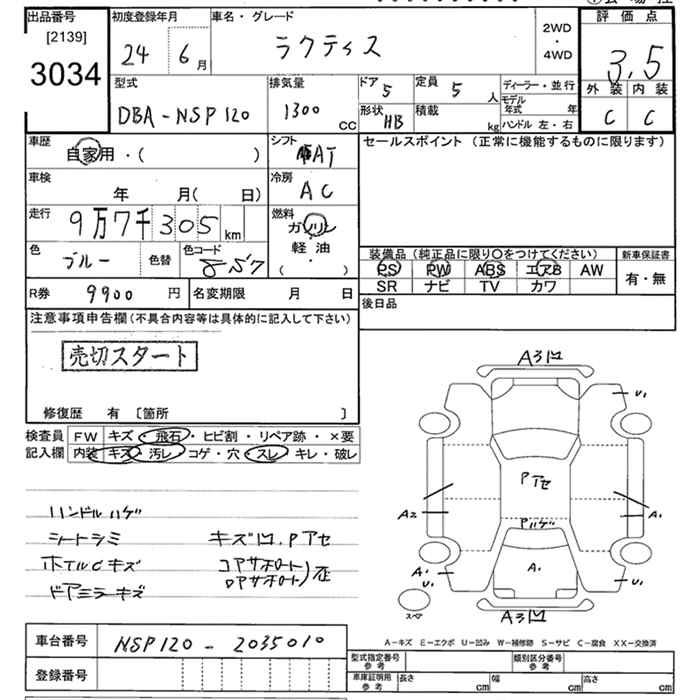 出品番号 初度登録年月 車名・グレード 評価点
[2139] 24 6月 ラクティス 2WD・4WD 3.5
3034 外装 内装
型式 排気量 ドア 5 定員 5人 ディーラー・並行 C C
DBA-NSP120 1300cc 形状 HB 積載 kg モデル年式 年
ハンドル 左・右
車歴 シフト セールスポイント (正常に機能するものに限ります)
自家用・( ) AT
車検 冷房
年 月( 日) AC
走行 燃料
9万7千305km ガソリン
軽油
( )
色 色替 色コード 装備品(純正品に限り○をつけてください) 新車保証書
ブルー 8S7 PS PW ABS エアB AW 有・無
SR ナビ TV カワ
R券 9900円 名変期限 月 日 後日品
注意事項申告欄(不具合内容等は具体的に記入して下さい)
売切スタート
修復歴 有 [箇所 ]
検査員 FW キズ・飛石・ヒビ割・リペア跡・×要
記入欄 内装 キズ・汚レ・コゲ・穴・スレ・キレ・破レ
ハンドルハゲ
シートシミ キズ凹.Pアセ
ホイルCキズ コアサポート
ドアミラーキズ ロアサポート
A3凹
U1
Pアセ
A2
Pハゲ
A1
A1
A1
U1
U1
スペア
A3凹
A-キズ E-エクボ U-凹み W-補修跡 S-サビ C-腐食 XX-交換済
車台番号 NSP120-2035010
登録番号
型式指定番号 参考 類別区分番号 参考
車庫証明用 参考 長さ cm 幅 cm 高さ cm